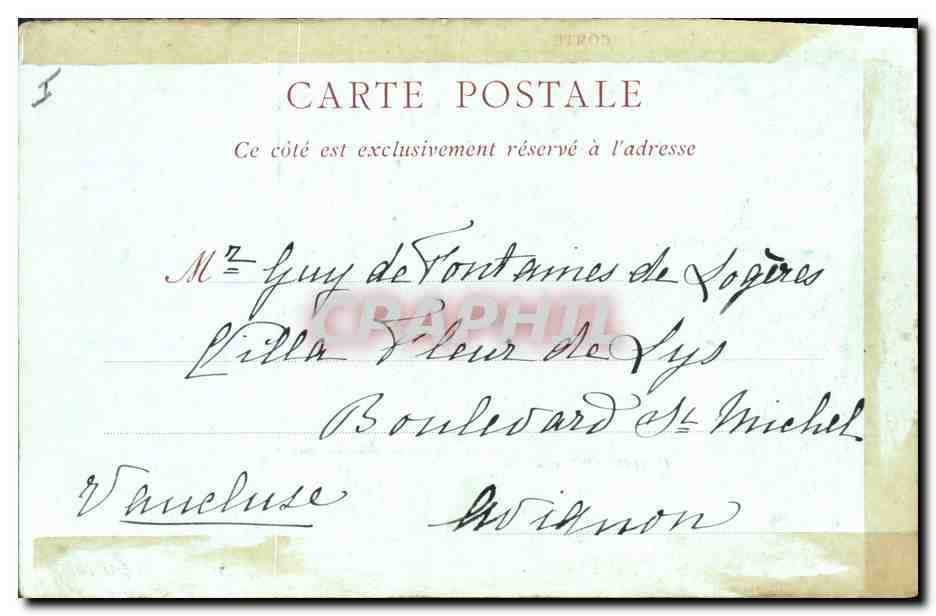 I
CARTE POSTALE
Ce côté est exclusivement réservé à l'adresse
Mr Guy de Fontaines de Logères
CPAPHIL
Villa Fleur de Lys
Boulevard St Michel
Vaucluse Avignon